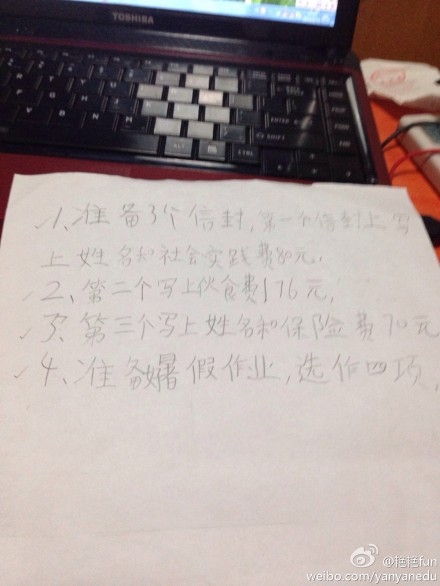 TOSHIBA
ENTER
SHIFT
ALT
CTRL
✓1、准备3个信封,第一个信封上写
上姓名和社会实践费80元,
✓2、第二个写上伙食费176元,
✓3、第三个写上姓名和保险费70元
✓4、准备暑假作业,选作四项,
@艳艳fun
weibo.com/yanyanedu